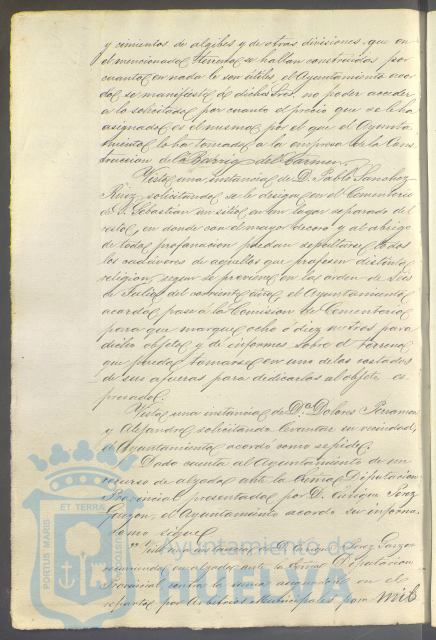 y cimientos de algibes y de otras divisiones que en
el mencionado se hallan construidos por
cuanto en nada le son útiles, el Ayuntamiento acor
dó se manifieste á dichos Sres. no poder acceder
á lo solicitado por cuanto el precio que se le ha
asignado es el mismo por el que el Ayunta
miento lo ha tomado á la empresa de la Cons
truccion de la Barrio del Carmen.
Vista una instancia de D. Pablo Sanchez
Ruiz solicitando se le designe en el Cementerio
de S. Sebastian un sitio en un lugar separado del
resto, en donde con el mayor decoro y al abrigo
de toda profanacion puedan sepultarse todos
los cadáveres de aquellos que profesen distinta
religion, segun se previene en las orden de
de Julio del corriente año, el Ayuntamiento
acordó pase á la Comision de Cementerio
para que marque ocho ó diez metros para
dicho objeto, y de informes sobre el terreno
que pueda tomarse en uno de los costados
de sus afueras para dedicarlos al objeto es-
presado.
Vista una instancia de D.ª Dolores
y Alejandro solicitando levantar su vecindad,
el Ayuntamiento acordó como se pide.
Dada cuenta al Ayuntamiento de un
recurso de alzada ante la Diputacion
Provincial presentada por D. Enrique Perez
Garzon, el Ayuntamiento acordó su informe
como sigue
instancia de D. Enrique Perez Garzon
en alzada ante la Diputacion
Provincial contra la en el
reparto por Arbitrios Municipales por
PORTUS MARIS ET TERRAE CUSTODIA
Ayuntamiento de
HUELVA